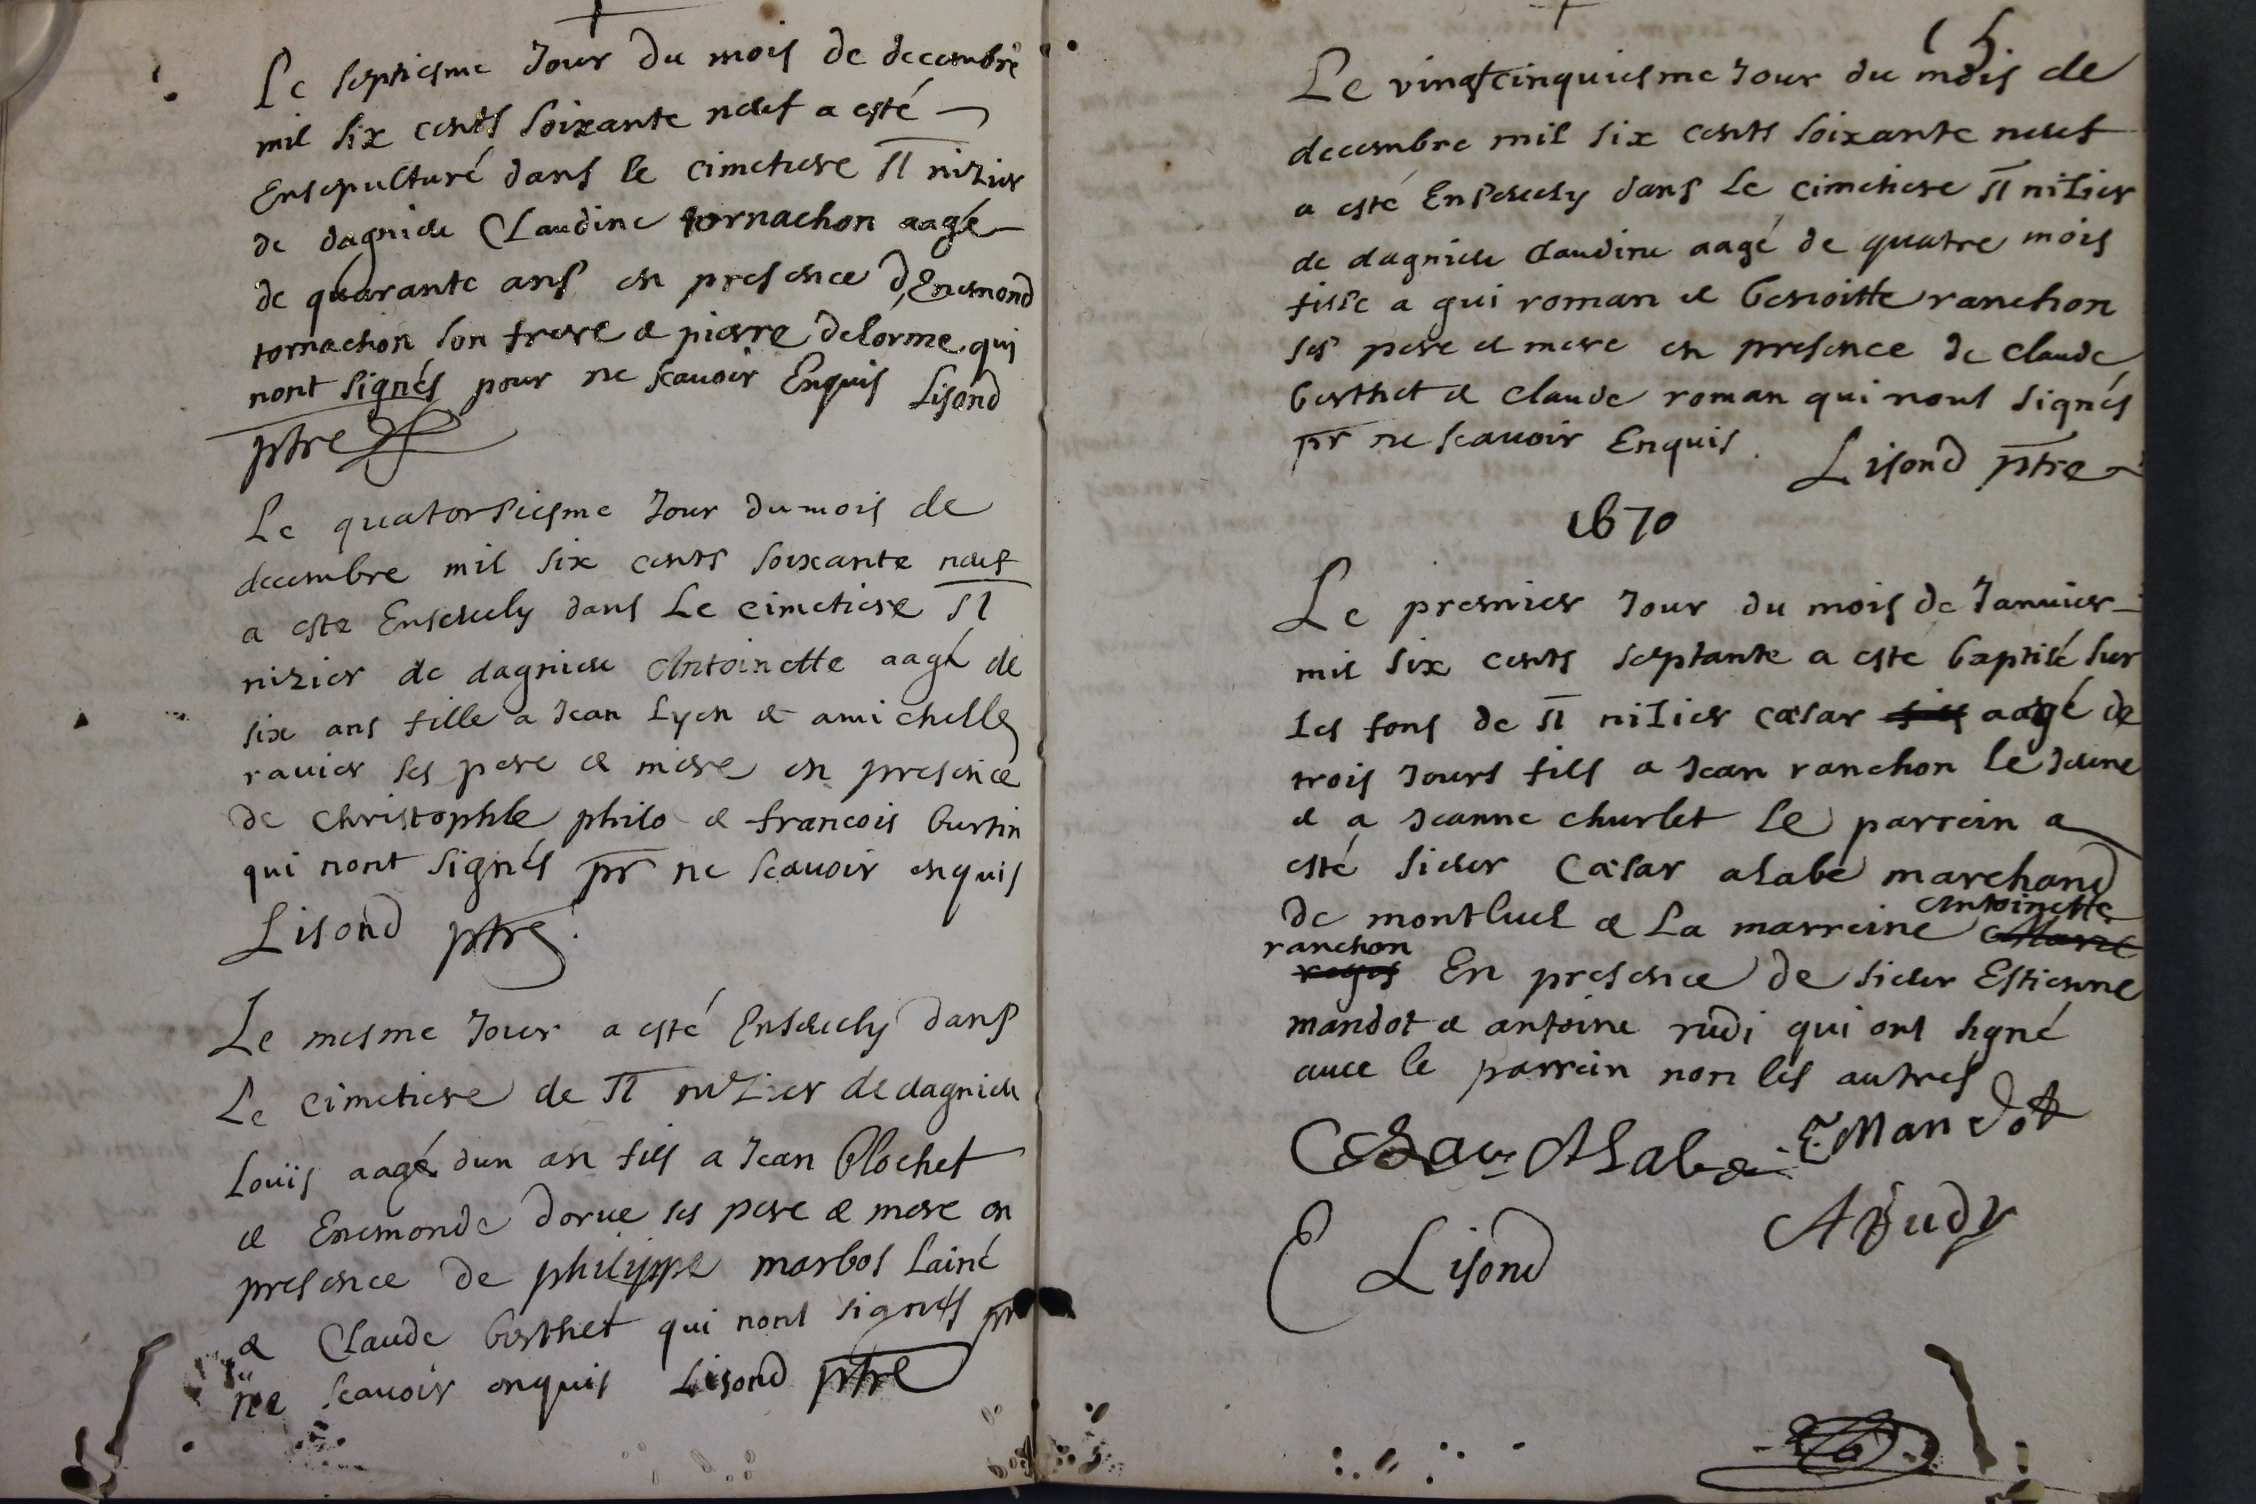 Le septiesme Jour Du mois de decembre
mil six cents soixante neuf a esté
Ensepulturé dans le cimetiere St nizier
de dagnieu Claudine tornachon aagé
de quarante ans en presence d'Enemond
tornachon son frere & pierre delorme qui
nont signés pour ne scavoir Enquis Lisond
ptre
Le quatorsiesme Jour du mois de
decembre mil six cents soixante neuf
a este Ensevely dans Le cimetiere St
nizier de dagnieu Antoinette aagé de
six ans fille a Jean Lyon & a michelle
ravier ses pere & mere en presence
de christophle philo & francois burtin
qui nont signés pr ne scavoir enquis
Lisond ptre.
Le mesme Jour a esté Ensevely dans
Le cimetiere de St nizier de dagnieu
Louïs aagé dun an fils a Jean Blochet
& Enemonde dorue ses pere & mere en
presence de philippe marbos Lainé
& Claude berthet qui nont signés pr
ne scavoir enquis Lisond ptre
Le vingtcinquiesme Jour du mois de
decembre mil six cents soixante neuf
a esté Ensevely dans Le cimetiere St nizier
de dagnieu claudine aagé de quatre mois
fille a gui roman & benoitte ranchon
ses pere & mere en presence de claude
berthet & claude roman qui nont signés
pr ne scavoir Enquis. Lisond ptre
1670
Le premier Jour du mois de Janvier
mil six cents septante a este baptisé sur
les fons de St nizier cæsar aagé de
trois Jours fils a Jean ranchon le Jeune
& a Jeanne churlet le parrein a
esté sieur Cæsar alabe marchand
de montluel & La marreine Antoinette
ranchon En presence de sieur Estienne
mandot & antoine rudi qui ont signé
avec le parrein non les autres
Cesar Alabe E Mandot
A Rudy
Lisond